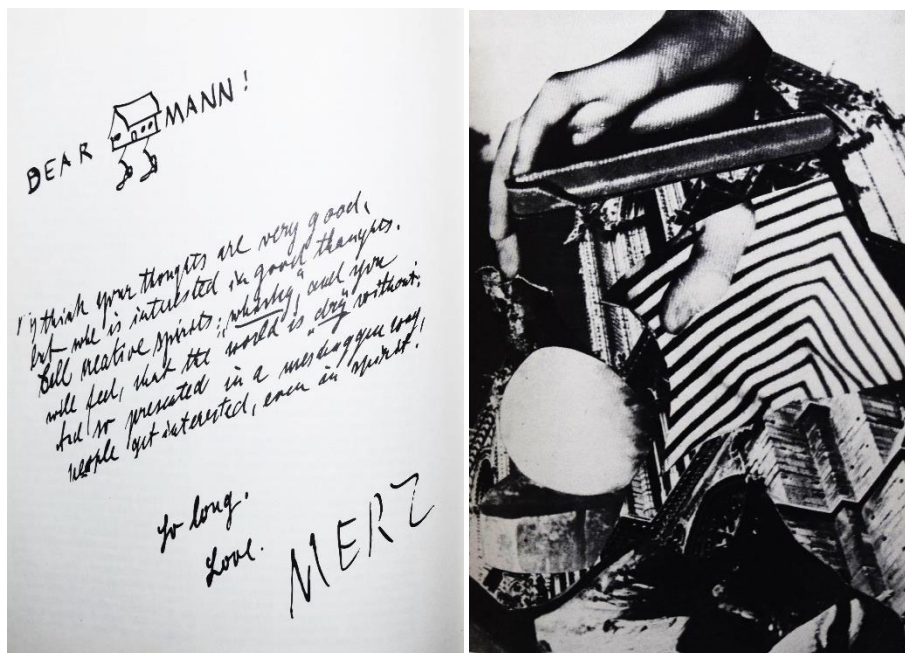 DEAR MANN!
I think your thoughts are very good,
but who is interested in good thoughts.
Call creative spirits: "whisky", and you
will feel, that the world is "dry" without.
And so presented in a way,
people get interested, even in spirit.
So long.
Love.
MERZ